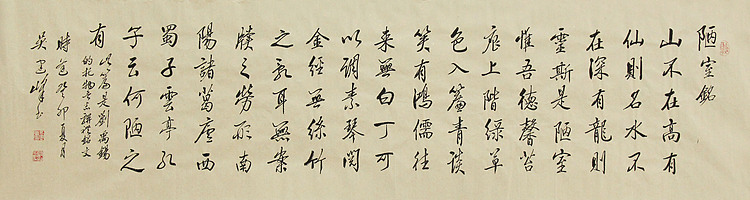 陋室銘
山不在高有
仙則名水不
在深有龍則
靈斯是陋室
惟吾德馨苔
痕上階綠草
色入簾青談
笑有鴻儒往
來無白丁可
以調素琴閱
金經無絲竹
之亂耳無案
牘之勞形南
陽諸葛廬西
蜀子雲亭孔
子云何陋之
有
此篇是劉禹錫
的托物言志駢體銘文
時癸卯夏月
吳峰